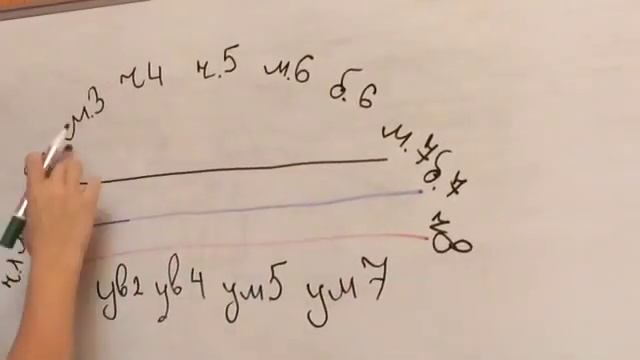 м.3 ч4 ч.5 м.6 б.6 м.7 б.7 ч8
ч.1
ув2 ув4 ум5 ум7